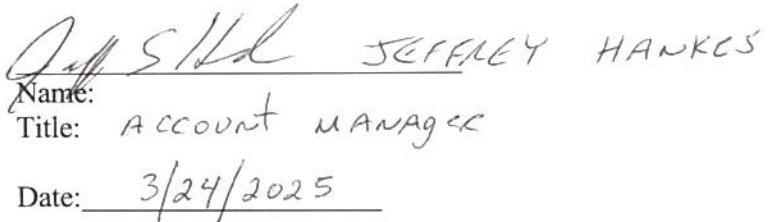 Jeff S Hank JEFFREY HANKES
Name:
Title: ACCOUNT MANAGER
Date: 3/24/2025